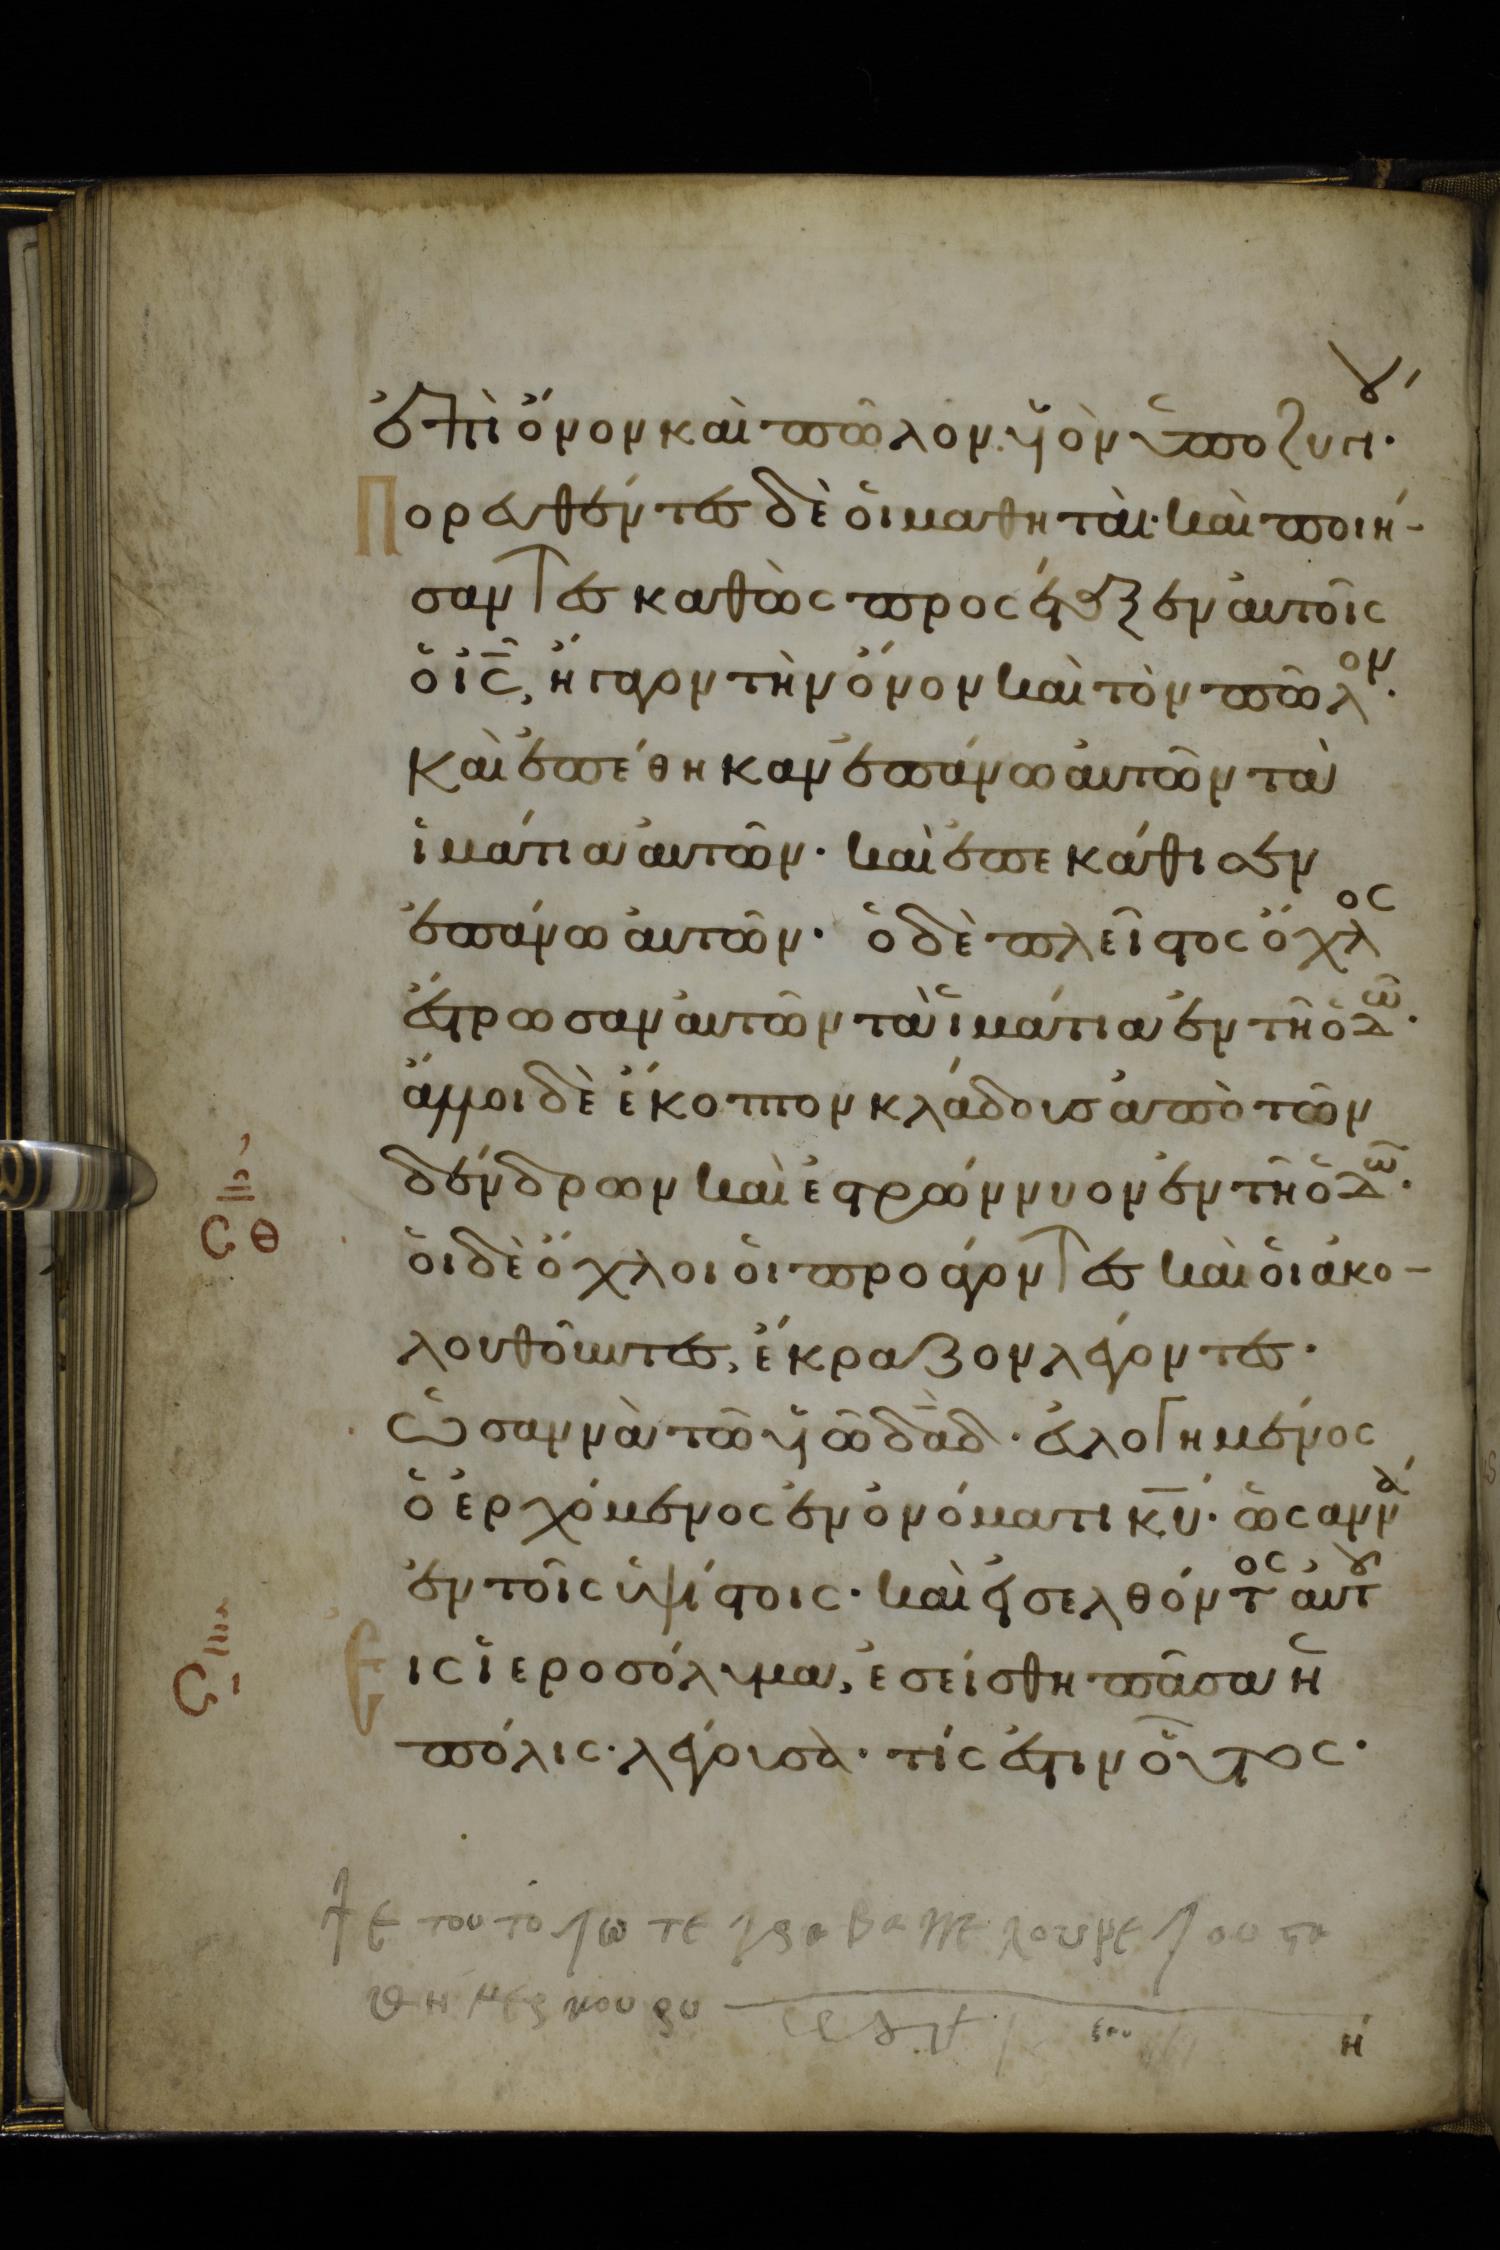 ἐπὶ ὄνον καὶ πῶλον υἱὸν ὑποζυγίου·
Πορευθέντες δὲ οἱ μαθηταὶ· καὶ ποιή-
σαντες καθὼς προσέταξεν αὐτοῖς
ὁ ις̅, ἤγαγον τὴν ὄνον καὶ τὸν πῶλον·
καὶ ἐπέθηκαν ἐπάνω αὐτῶν τὰ
ἱμάτια αὐτῶν· καὶ ἐπεκάθισεν
ἐπάνω αὐτῶν· ὁ δὲ πλεῖστος ὄχλος
ἔστρωσαν αὐτῶν τὰ ἱμάτια ἐν τῇ ὁδῶ·
ἄλλοι δὲ ἔκοπτον κλάδους ἀπὸ τῶν
δένδρων καὶ ἐστρώννυον ἐν τῇ ὁδῶ·
οἱ δὲ ὄχλοι οἱ προάγοντες καὶ οἱ ἀκο-
λουθοῦντες, ἔκραζον λέγοντες·
ὡσαννὰ τῶ υἱῶ δα̅δ· εὐλογημένος
ὁ ἐρχόμενος ἐν ὀνόματι κ̅υ· ὡσαννὰ
ἐν τοῖς ὑψίστοις· καὶ εἰσελθόντος αὐτοῦ
Εἰς ἱεροσόλυμα, ἐσείσθη πᾶσα ἡ
πόλις· λέγουσα· τίς ἐστιν οὗτος·
ϛθ
ϛι
η